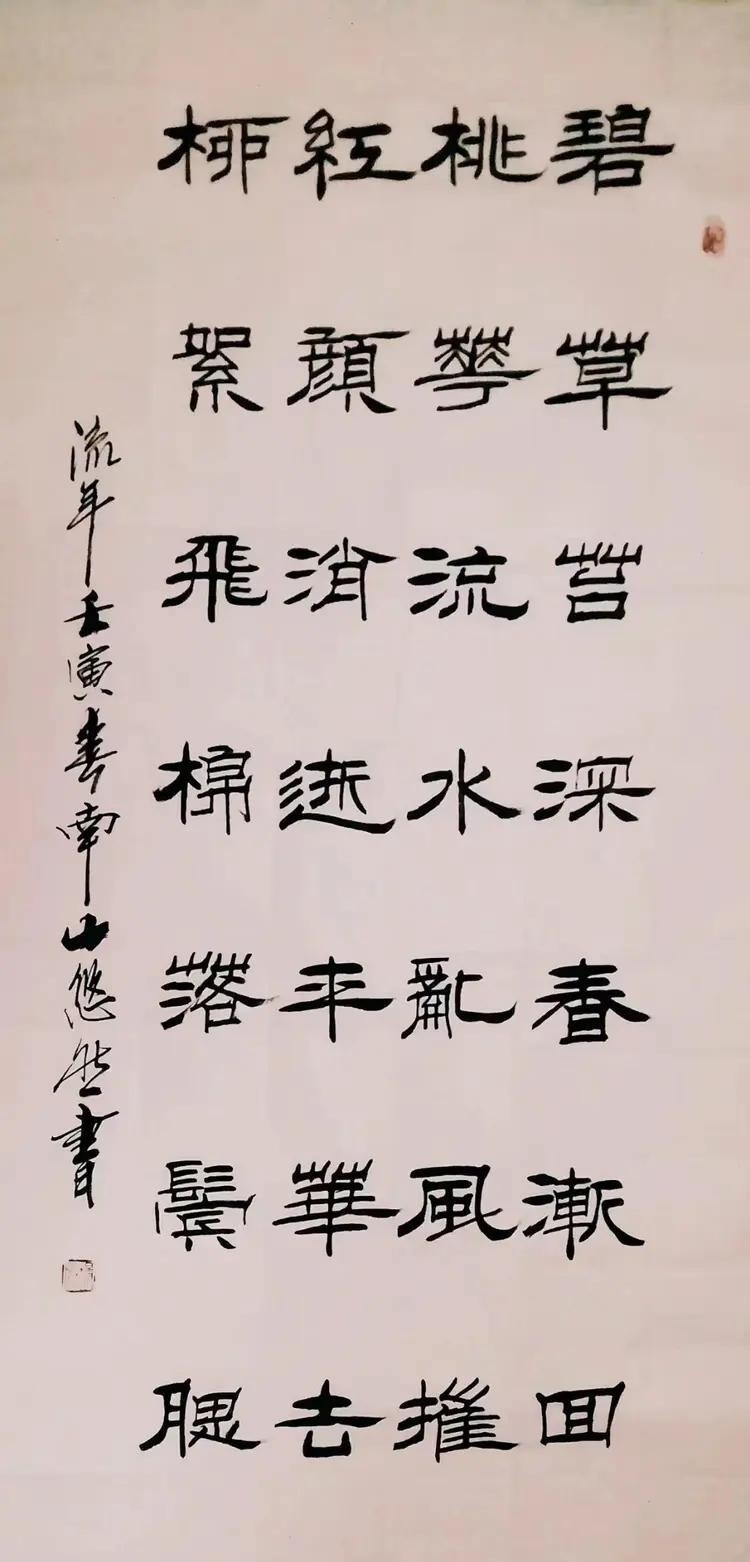 碧草苔深春漸回
桃華流水亂風摧
紅顏消逝年華去
柳絮飛棉落鬢腮
流年 壬寅春南山悠然書